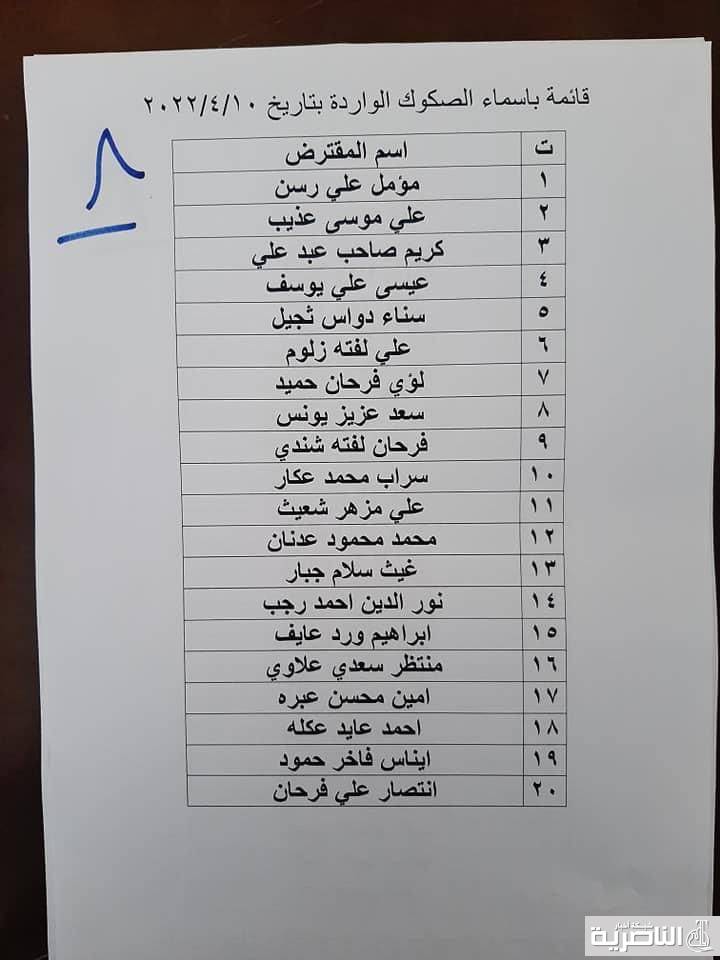 قائمة باسماء الصكوك الواردة بتاريخ ٢٠٢٢/٤/١٠
٨
ت اسم المقترض
١ مؤمل علي رسن
٢ علي موسى عذيب
٣ كريم صاحب عبد علي
٤ عيسى علي يوسف
٥ سناء دواس ثجيل
٦ علي لفته زلوم
٧ لؤي فرحان حميد
٨ سعد عزيز يونس
٩ فرحان لفته شندي
١٠ سراب محمد عكار
١١ علي مزهر شعيث
١٢ محمد محمود عدنان
١٣ غيث سلام جبار
١٤ نور الدين احمد رجب
١٥ ابراهيم ورد عايف
١٦ منتظر سعدي علاوي
١٧ امين محسن عبره
١٨ احمد عايد عكله
١٩ ايناس فاخر حمود
٢٠ انتصار علي فرحان
شبكة اخبار
الناصرية